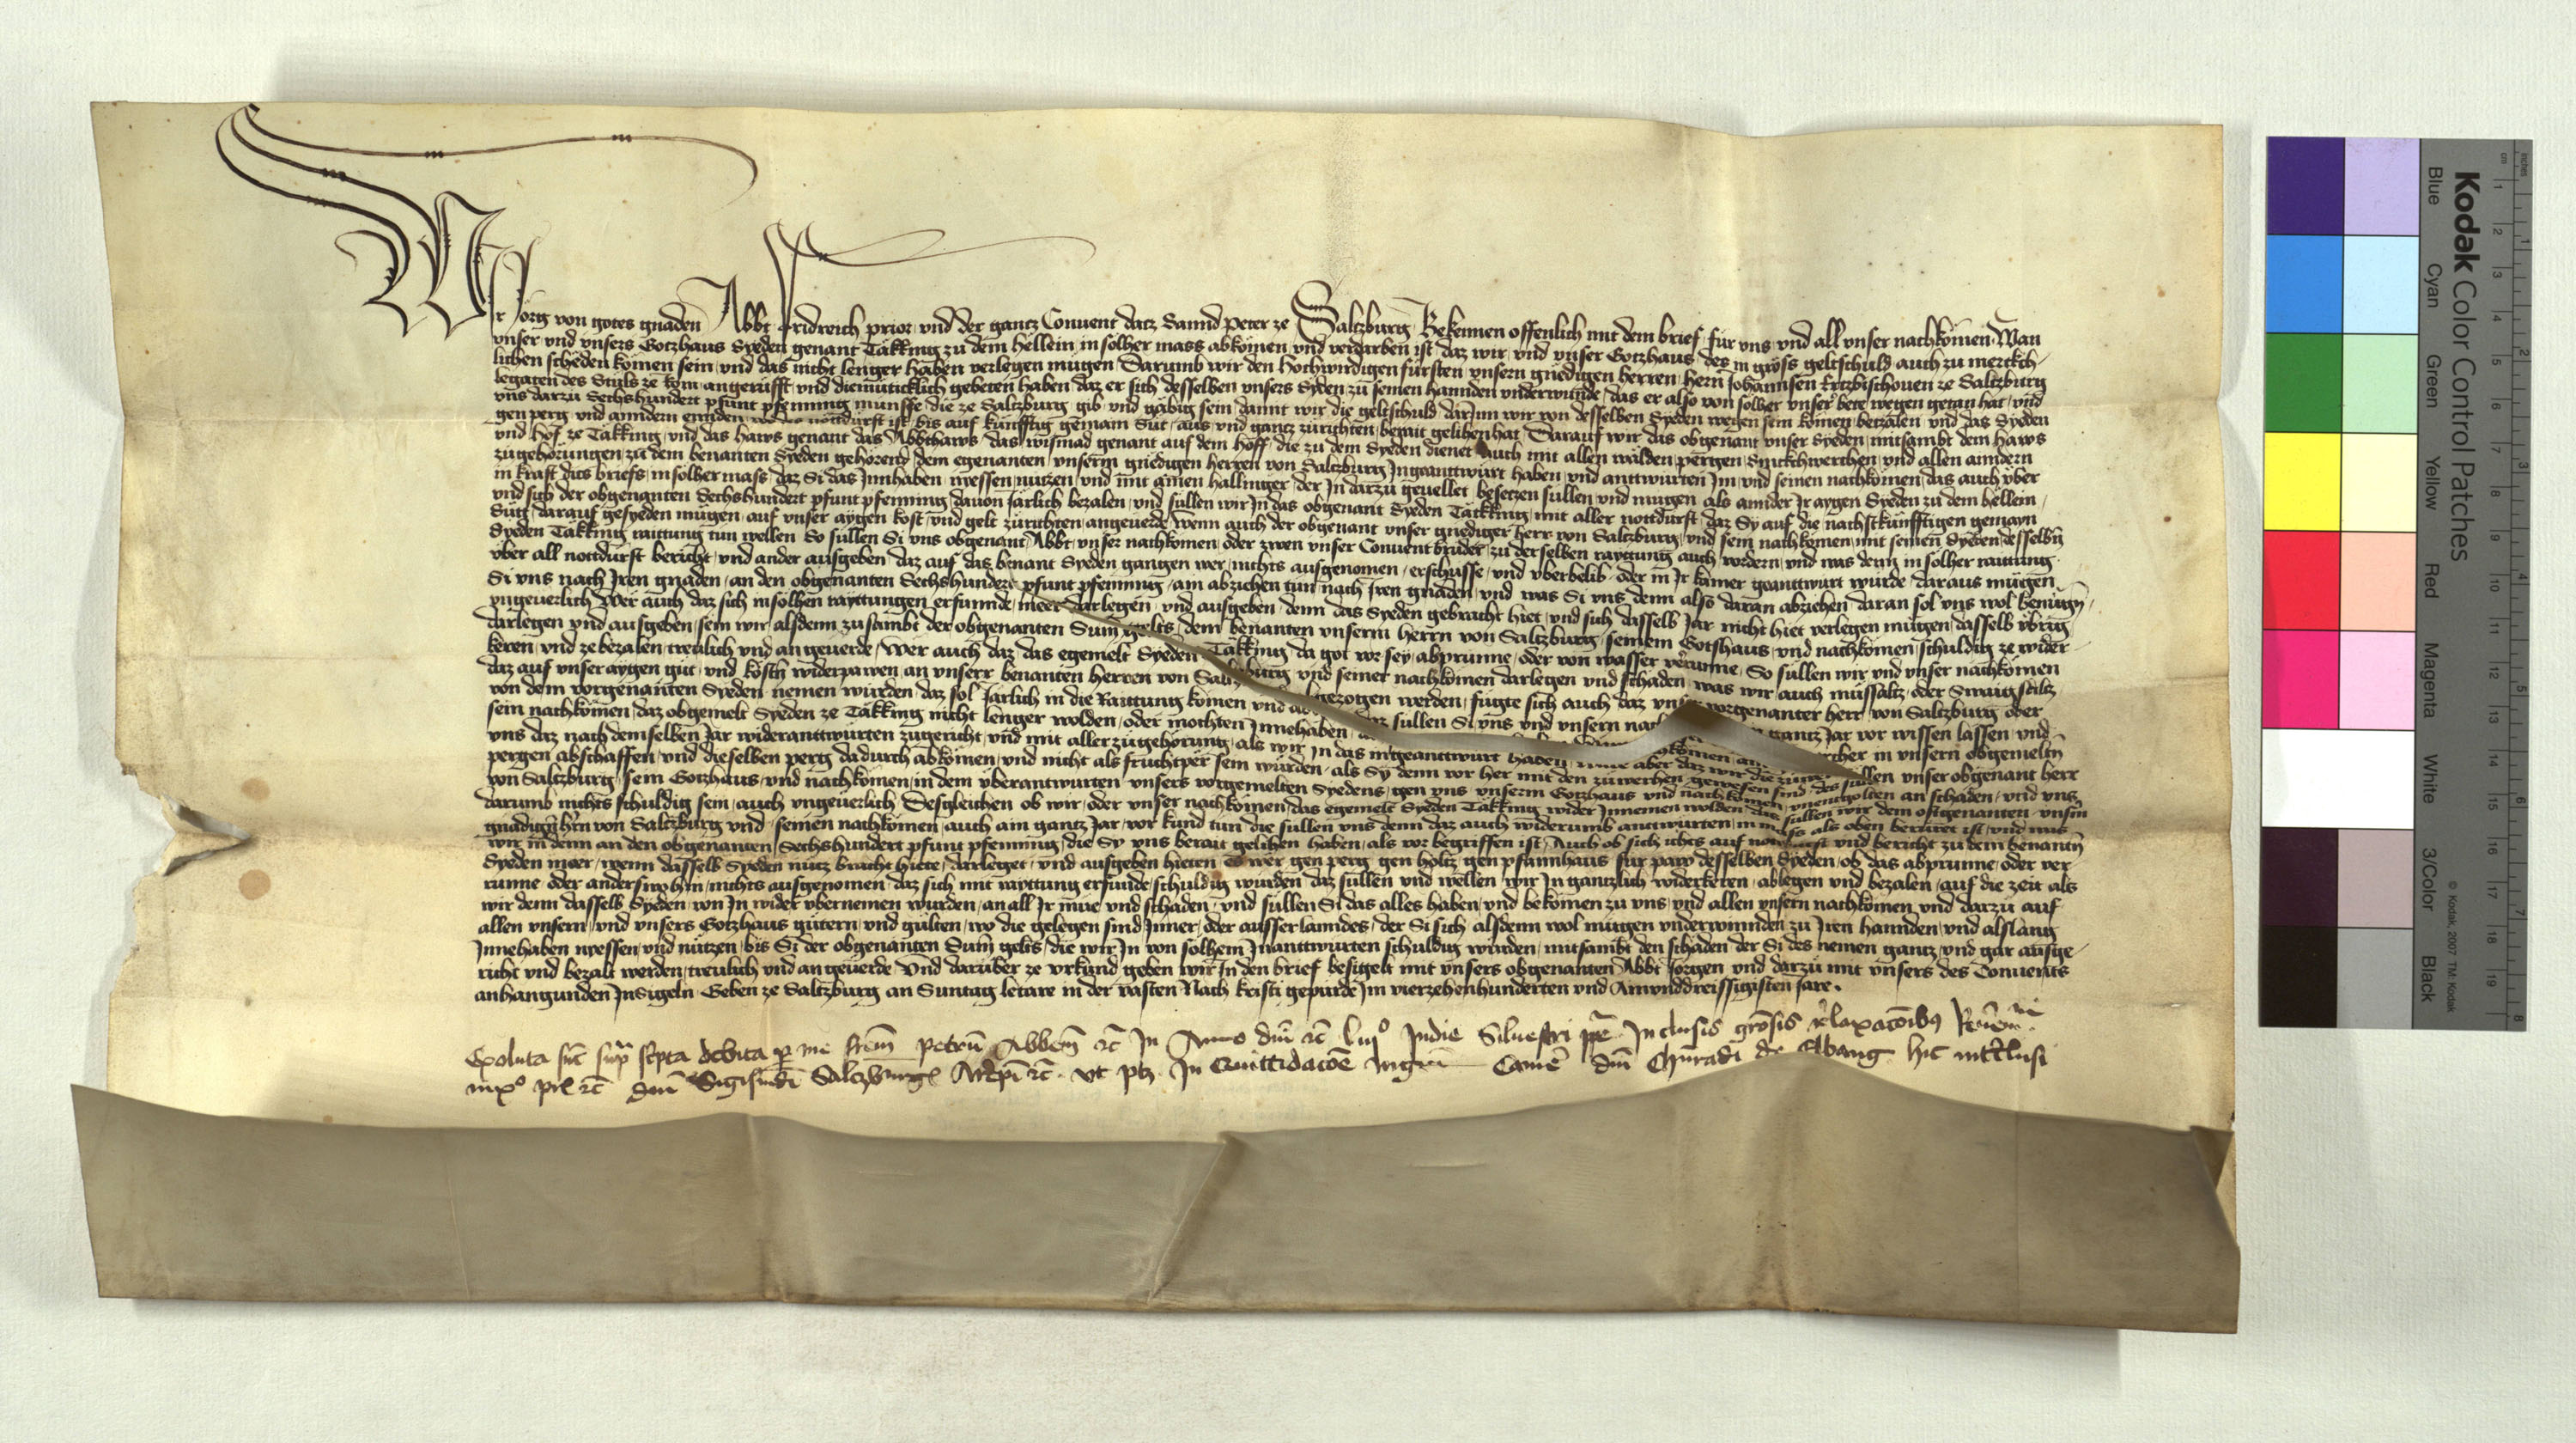 Wir Jörg von gotes gnaden Abbt Fridreich prior und der gantz Convent datz Sannd Peter ze Saltzburg Bekennen offenlich mit dem brief für uns und all unser nachkömen Wan
unser und unsers Gotzhaus Syeden genant Täkking zu dem hellein in solher mass abkömen und verdarben ist daz wir und unser Gotzhaus des in gröss geltschuld auch zu merckch
lichen scheden kömen sein und das nicht lenger haben verlegen mügen Darumb wir den hochwirdigen fürsten unsern gnedigen herren hern Johannsen Ertzbischoven ze Saltzburg
legaten des Stuls ze Rom angerüfft und diemüticklich gebeten haben daz er sich desselben unsers Syeden zu seinen hannden underwunde das er also von solher unser bete wegen getan hat und
uns darzu Sechshundert pfunt pfenning münsse die ze Saltzburg gib und gäbig sein damit wir die geltschuld darinn wir von desselben Syeden wegen sein kömen betzalen und das Syeden
gen perg und anndern ennden notdurft ist bis auf künfftig gemain Süt aus und gantz zurichten berait gelihen hat Darauf wir das obgenant unser Syeden mitsambt dem haws
und höf ze Täkking und das haws genant das Abbthaws das wismad genant auf dem höff die zu dem Syeden dienet Auch mit allen wälden pergen Smickchwerchen und allen anndern
zugehörungen zu dem benanten Syeden gehörend dem egenanten unserm gnedigen herren von Saltzburg Ingeantwürt haben und antwurten Im und seinen nachkömen das auch über
in kraft dits briefs in solher mass daz Si das Innhaben niessen nutzen und mit ainem hallinger der In darzu gevellet besetzen sullen und mugen als annder Ir aygen Syeden zu dem hellein
und sich der obgenanten Sechshundert pfunt pfenning davon Järlich bezalen und süllen wir In das obgenant Syeden Täkking mit aller notdurft daz Sy auf die nachstkünfftigen gemayn
Sütt darauf gesyeden mügen auf unser aygen kost und gelt zurichten angeverde Wenn auch der obgenant unser gnediger herr von Saltzburg und sein nachkömen mit seinen Syeden desselbn
Syeden Täkking raittung tun wellen So süllen Si uns obgenant Abbt unser nachkomen oder zwen unser Convent brüder zu derselben rayttung auch vordern und was denn in solher raittung
über all notdurft bericht und ander ausgeben daz auf das benant Syeden gangen wer nichts ausgenomen erschusse und uberbelib oder in Ir kamer geantwurt würde daraus mügen
Si uns nach Iren gnaden an den obgenanten Sechshundert pfunt pfenning ain abziehen tun nach Iren gnaden und was Si uns denn also daran abziehen daran sol uns wol benügn
ungeverlich Wer auch daz sich in solhen rayttungen erfunnde meer darlegen und ausgeben denn das Syeden gebracht hiet und sich dasselb Jar nicht hiet verlegen mügen dasselb übrig
darlegen und ausgeben sein wir alsdenn zusambt der obgenanten Sum gelts dem benanten unserm herrn von Saltzburg seinem Gotshaus und nachkömen schuldig ze wider
keren und ze bezalen treulich und an geverde Wer auch daz das egemelt Syeden Täkking da got vor sey abprunne oder von wasser verrunne So süllen wir und unser nachkömen
daz auf unser aygen güt und kostn widerpawen an unsers benanten herren von Saltzburg und seiner nachkömen darlegen und schaden was wir auch müssaltz oder Smaigstiltz
von dem vorgenanten Syeden nemen würden daz sol Järlich in die Raittung kömen und abgezogen werden fügte sich auch daz unser vorgenanter herr von Saltzburg oder
sein nachkömen daz obgemelt Syeden ze Täkking nicht lenger wolden oder möchten Innehaben daz süllen Si uns und unsern gantz Jar vor wissen lassen und
uns daz nach demselben Jar widerantwürten zugericht und mit aller zugehörung als wir In das ingeantwürt haben aber daz wir die in unsern obgemeltn
pergen abschaffen und dieselben perg dadurch abkömen und nicht als fruchtper sein würden als Sy denn vor her mit den zuwerchen gewesen sind des süllen unser obgenant herr
von Saltzburg sein Gotzhaus und nachkömen in dem überantwurten unsers vorgemelten Syedens gen uns unserm Gotzhaus und nachkömen unentgolten an schaden und uns
darumb nichts schuldig sein auch ungeverlich Desgleichen ob wir oder unser nachkömen das egemelt Syeden Täkking wider Innemen wolden die süllen wir dem obgenanten unserm
gnädign hern von Saltzburg und seinen nachkömen auch ain gantz Jar vor kund tun die süllen uns denn daz auch widerumb antwürten in mass als oben berüret ist und was
wir in denn an den obgenanten Sechshundert pfunt pfenning die Sy uns berait gelihen haben als vor begriffen ist Auch ob sich ichts auf notdurft und bericht zu dem benantn
Syeden meer wenn dasselb Syeden nütz bracht hiette darleget und ausgeben hieten Es wer gen perg gen holtz gen pfannhaus für paw desselben Syeden ob das abprunne oder ver
runne oder anderswohin nichts ausgenomen daz sich mit rayttung erfunde schuldig würden daz süllen und wellen wir In gantzlich widerkeren ablegen und bezalen auf die zeit als
wir denn dasselb Syeden von In wider übernemen würden an all Ir müe und schaden und süllen Si das alles haben und bekömen zu uns und allen unsern nachkömen und darzu auf
allen unsern und unsers Gotzhaus gütern und gülten wo die gelegen sind Inner oder ausser lanndes der Si sich alsdenn wol mügen underwinnden zu Iren hannden und alslang
Innehaben niessen und nützen bis Si der obgenanten Sum gelts die wir In von solhem Inantwürten schuldig würden mitsambt den schaden der Si des nemen gantz und gar ausge
richt und bezalt werden treulich und an geverde Und darüber ze urkund geben wir In den brief besigelt mit unsers obgenanten Abbt Jörgen und darzu mit unsers des Convents
anhangunden Insigeln Geben ze Saltzburg an Suntag letare in der vasten Nach kristi gepurde Im vierzehenhunderten und Ainunddreissigisten Jare.
Exoluta sūt sup scpta debita p me frēm petrū Abbem rc In Anno dni rc liiijº In die Silvestri pp Inclusis grosis relaxacoibus
dni Sigismūdi Saltzburg Archiepi rc ut ptz In Quittidacōe Camē dni Chunradi de hic